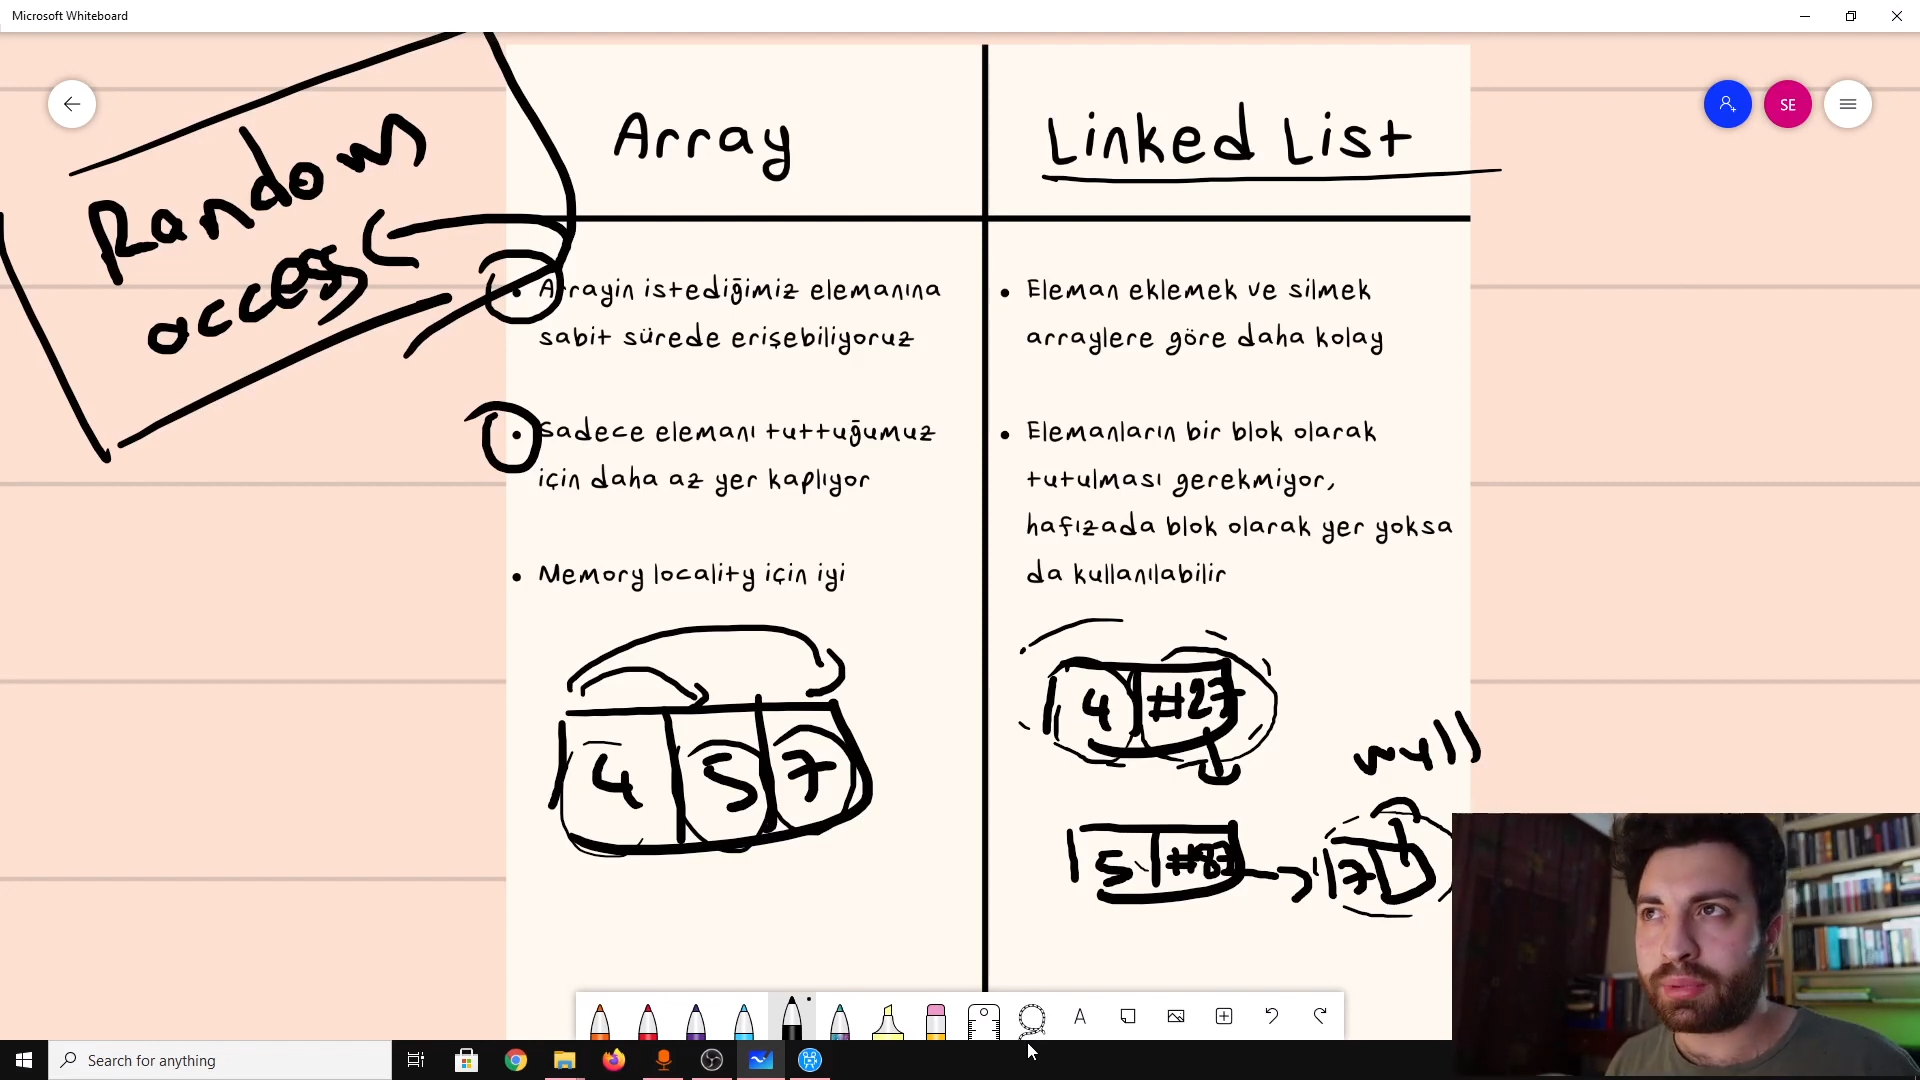 Microsoft Whiteboard
Random
access
SE
Array
Linked List
Arrayin istediğimiz elemanına
sabit sürede erişebiliyoruz
Sadece elemanı tuttuğumuz
için daha az yer kaplıyor
Memory locality için iyi
4 5 7
Eleman eklemek ve silmek
arraylere göre daha kolay
Elemanların bir blok olarak
tutulması gerekmiyor,
hafızada blok olarak yer yoksa
da kullanılabilir
4 #27
null
5 #87
7
A
Search for anything